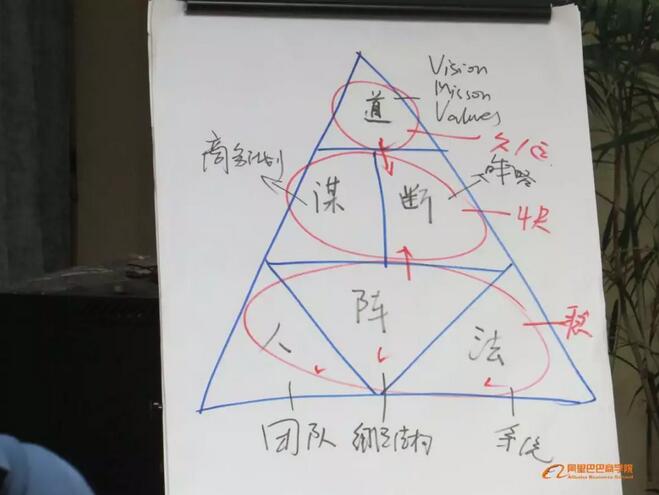 Vision
Misson
Values
道
商务计划
谋
断
阵
人
法
团队
组织结构
系统
阿里巴巴商学院
Alibaba Business School